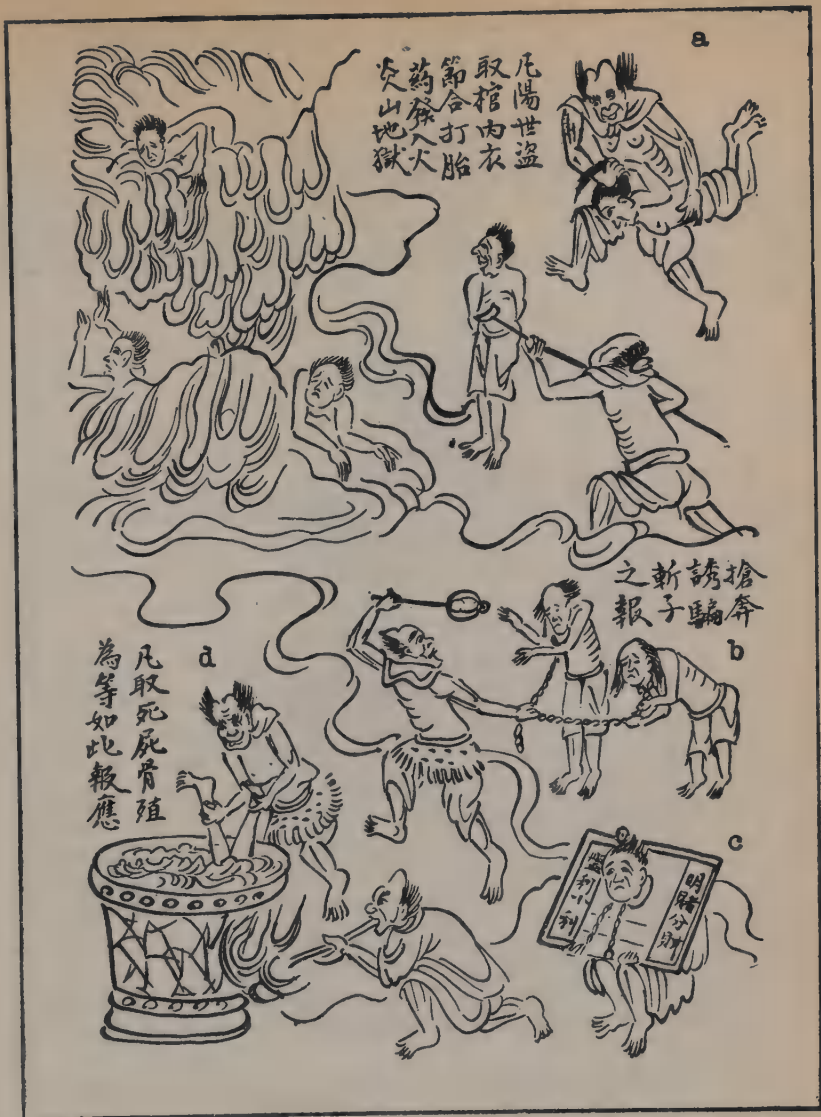 a
凡陽世盜
取棺内衣
節合打胎
藥發入火
炎山地獄
搶奔
誘騙
斬子
之報
b
d
凡取死屍骨殖
為等如此報應
c
明賭分財
利小利